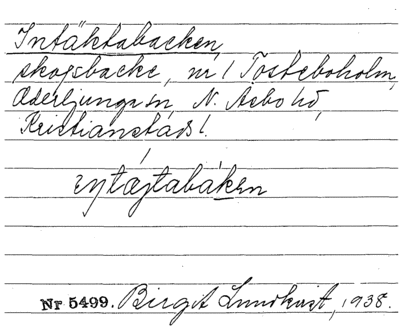 Intäktabacken,
skogsbacke, nr 1 Tosteboholm,
Oderljunga sn N. Åsbo hd,
Kristianstads l.
Nr 5499. Birgit Lundkvist, 1938.